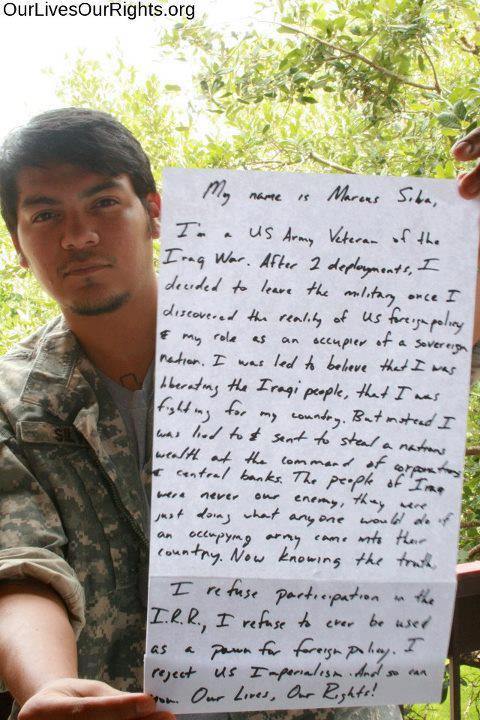 OurLivesOurRights.org
My name is Marcus Silva,
I'm a US Army Veteran of the
Iraq War. After 2 deployments, I
decided to leave the military once I
discovered the reality of US foreign policy
& my role as an occupier of a sovereign
nation. I was led to believe that I was
liberating the Iraqi people, that I was
fighting for my country. But instead I
was lied to & sent to steal a nations
wealth at the command of corporations
& central banks. The people of Iraq
were never our enemy, they were
just doing what anyone would do if
an occupying army came into their
country. Now knowing the truth,
I refuse participation in the
I.R.R., I refuse to ever be used
as a pawn for foreign policy. I
reject US Imperialism. And so can
you. Our Lives, Our Rights!